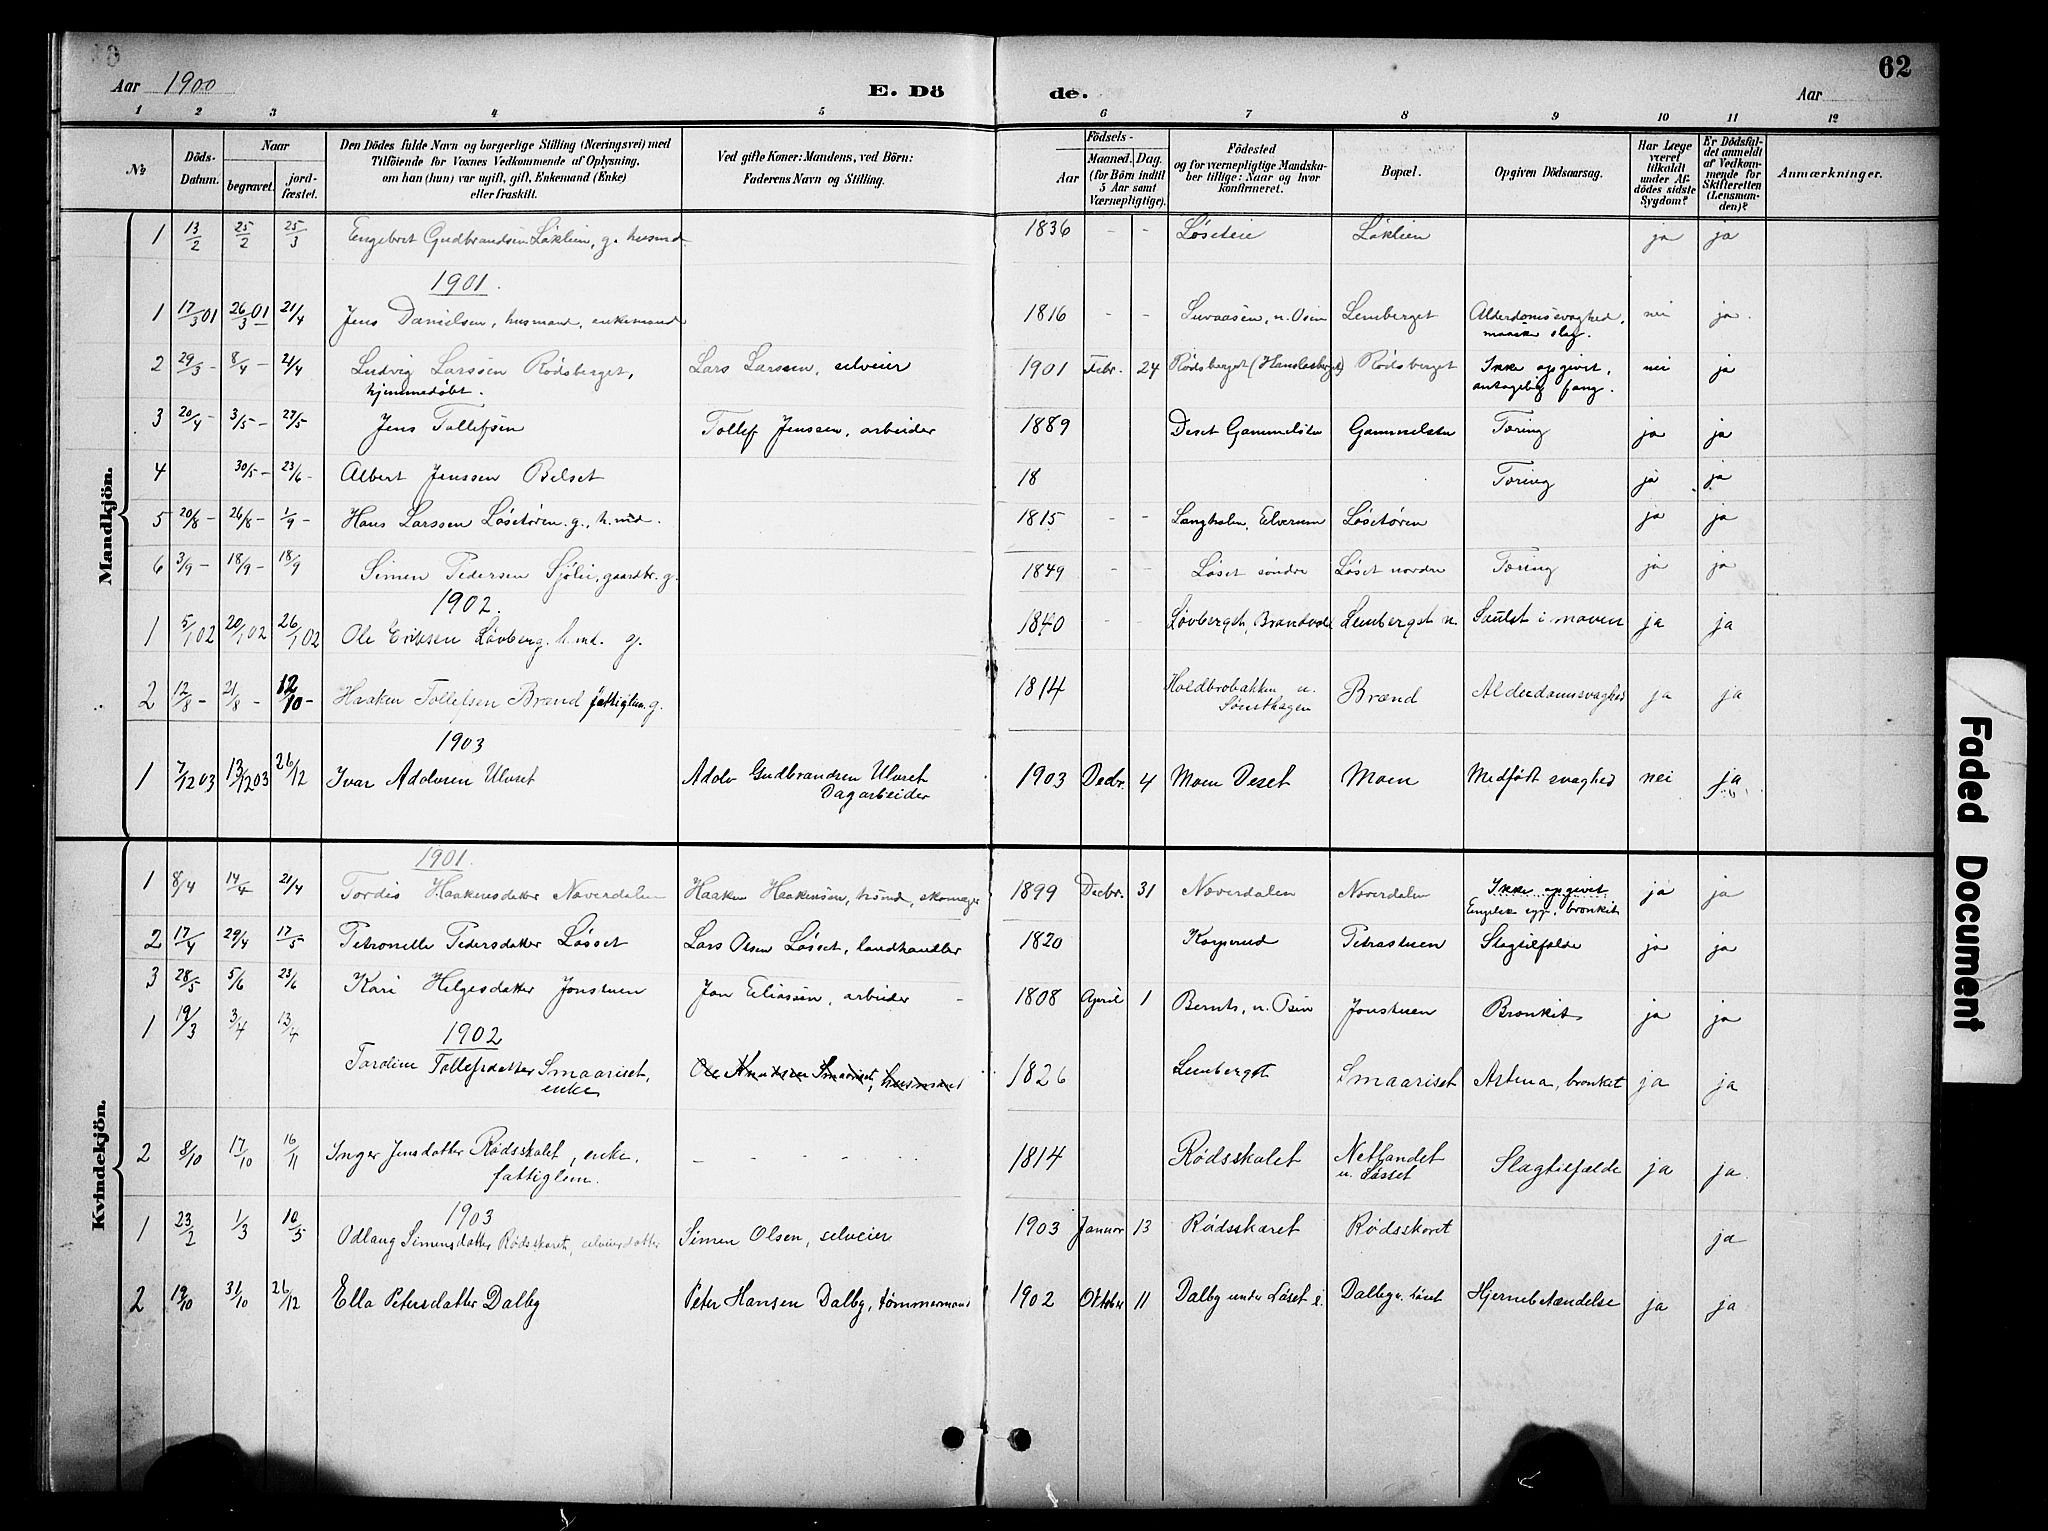 Aar 1900
E. Dö
de.
Aar
62
1 2 3 4 5 6 7 8 9 10 11 12
No
Döds-Datum.
Naar
begravet.
jord-fæstet.
Den Dödes fulde Navn og borgerlige Stilling (Næringsvei) med
Tilföiende for Voxnes Vedkommende af Oplysning,
om han (hun) var ugift, gift, Enkemand (Enke)
eller fraskilt.
Ved gifte Koner: Mandens, ved Börn:
Faderens Navn og Stilling.
Födsels-
Aar
Maaned. Dag.
(for Börn indtil
5 Aar samt
Værnepligtige).
Födested
og for værnepligtige Mandska-
ber tillige: Naar og hvor
konfirmeret.
Bopæl.
Opgiven Dödsaarsag.
Har Læge
været
tilkaldt
under Af-
dödes sidste
Sygdom?
Er Dödsfal-
det anmeldt
af Vedkom-
mende for
Skifteretten
(Lensman-
den)?
Anmærkninger.
Mandkjön.
1 13/2 25/2 25/3 Engebret Gudbrandsen Løklien, g. husmd 1836 - - Løseteie Løklien ja ja
1901.
1 17/3 01 26/3 01 21/4 Jens Danielsen, husmand, enkemand 1816 n. Osen Lemberget Alderdomssvaghed, nei ja.
maaske slag.
2 29/3 - 8/4 - 21/4 Ludvig Larssen Rødsberget, Lars Larssen, selveier 1901 Febr. 24 Rødsberget Rødsberget Ikke opgivet, nei ja
hjemmedøbt. antagelig
3 20/4 - 3/5 - 27/5 Jens Tollefsen Tollef Jenssen, arbeider 1889 Deset Gammelstu Gammelstu Tæring ja ja
4 30/5 - 23/6 - Albert Jenssen Belset 18 Tæring ja ja
5 20/8 - 26/8 - 1/9 - Hans Larssen Løsetøren. g., h.md. 1815 - - Elverum Løsetøren ja ja
6 3/9 - 18/9 - 18/9 Simen Pedersen Sjølie, gaardbr. g. 1849 - - Løset søndre Løset nordre Tæring ja ja
1902.
1 5/1 02 20/1 02 26/1 02 Ole Eriksen Løvberg. h.md. g. 1840 Løvberget, Brandvold Lemberget n. Svulst i maven ja ja
2 12/8 - 21/8 - 12/10 - Haaken Tollefsen Brænd fattiglem. g. 1814 Brænd Alderdomsvaghed ja ja
1903
1 7/12 03 13/12 03 26/12 Ivar Adolvsen Ulvset Adolv Gudbrandsen Ulvset 1903 Decbr. 4 Moen Deset Moen Medfødt svaghed nei ja
Dagarbeider
Kvindekjön.
1901.
1 8/4 14/4 21/4 Tordis Haakensdatter Næverdalen Haaken Haakensen, husmd, skomager 1899 Decbr. 31 Næverdalen Næverdalen Ikke opgivet ja ja
Engelsk syge, bronkit
2 17/4 29/4 17/5 Petronelle Pedersdatter Løsset Lars Olsen Løsset, landhandler 1820 Korperud Petrastuen Slagtilfælde ja ja
3 28/5 5/6 23/6 Kari Helgesdatter Jonstuen Jon Eliassen, arbeider - 1808 April 1 Bernts, n. Osen Jonstuen Bronkit ja ja
1 19/3 3/4 13/4
1902
Tordine Tollefsdatter Smaariset, Ole Knudsen Smaariset, husmand 1826 Lemberget Smaariset Astma, bronkit ja ja
enke
2 8/10 17/10 16/11 Inger Jensdatter Rødsskalet, enke, - - - - 1814 Rødsskalet Netlandet Slagtilfælde ja ja.
fattiglem. u. Løsset
1903
1 23/2 1/3 10/5 Odlaug Simensdatter Rødsskaret, selveierdatter Simen Olsen, selveier 1903 Januar 13 Rødsskaret Rødsskaret ja
2 19/10 31/10 26/12 Ella Petersdatter Dalby Peter Hansen Dalby, tømmermand 1902 Oktober 11 Dalby under Løset Dalby u. Løset Hjernebetændelse ja ja
Faded Document